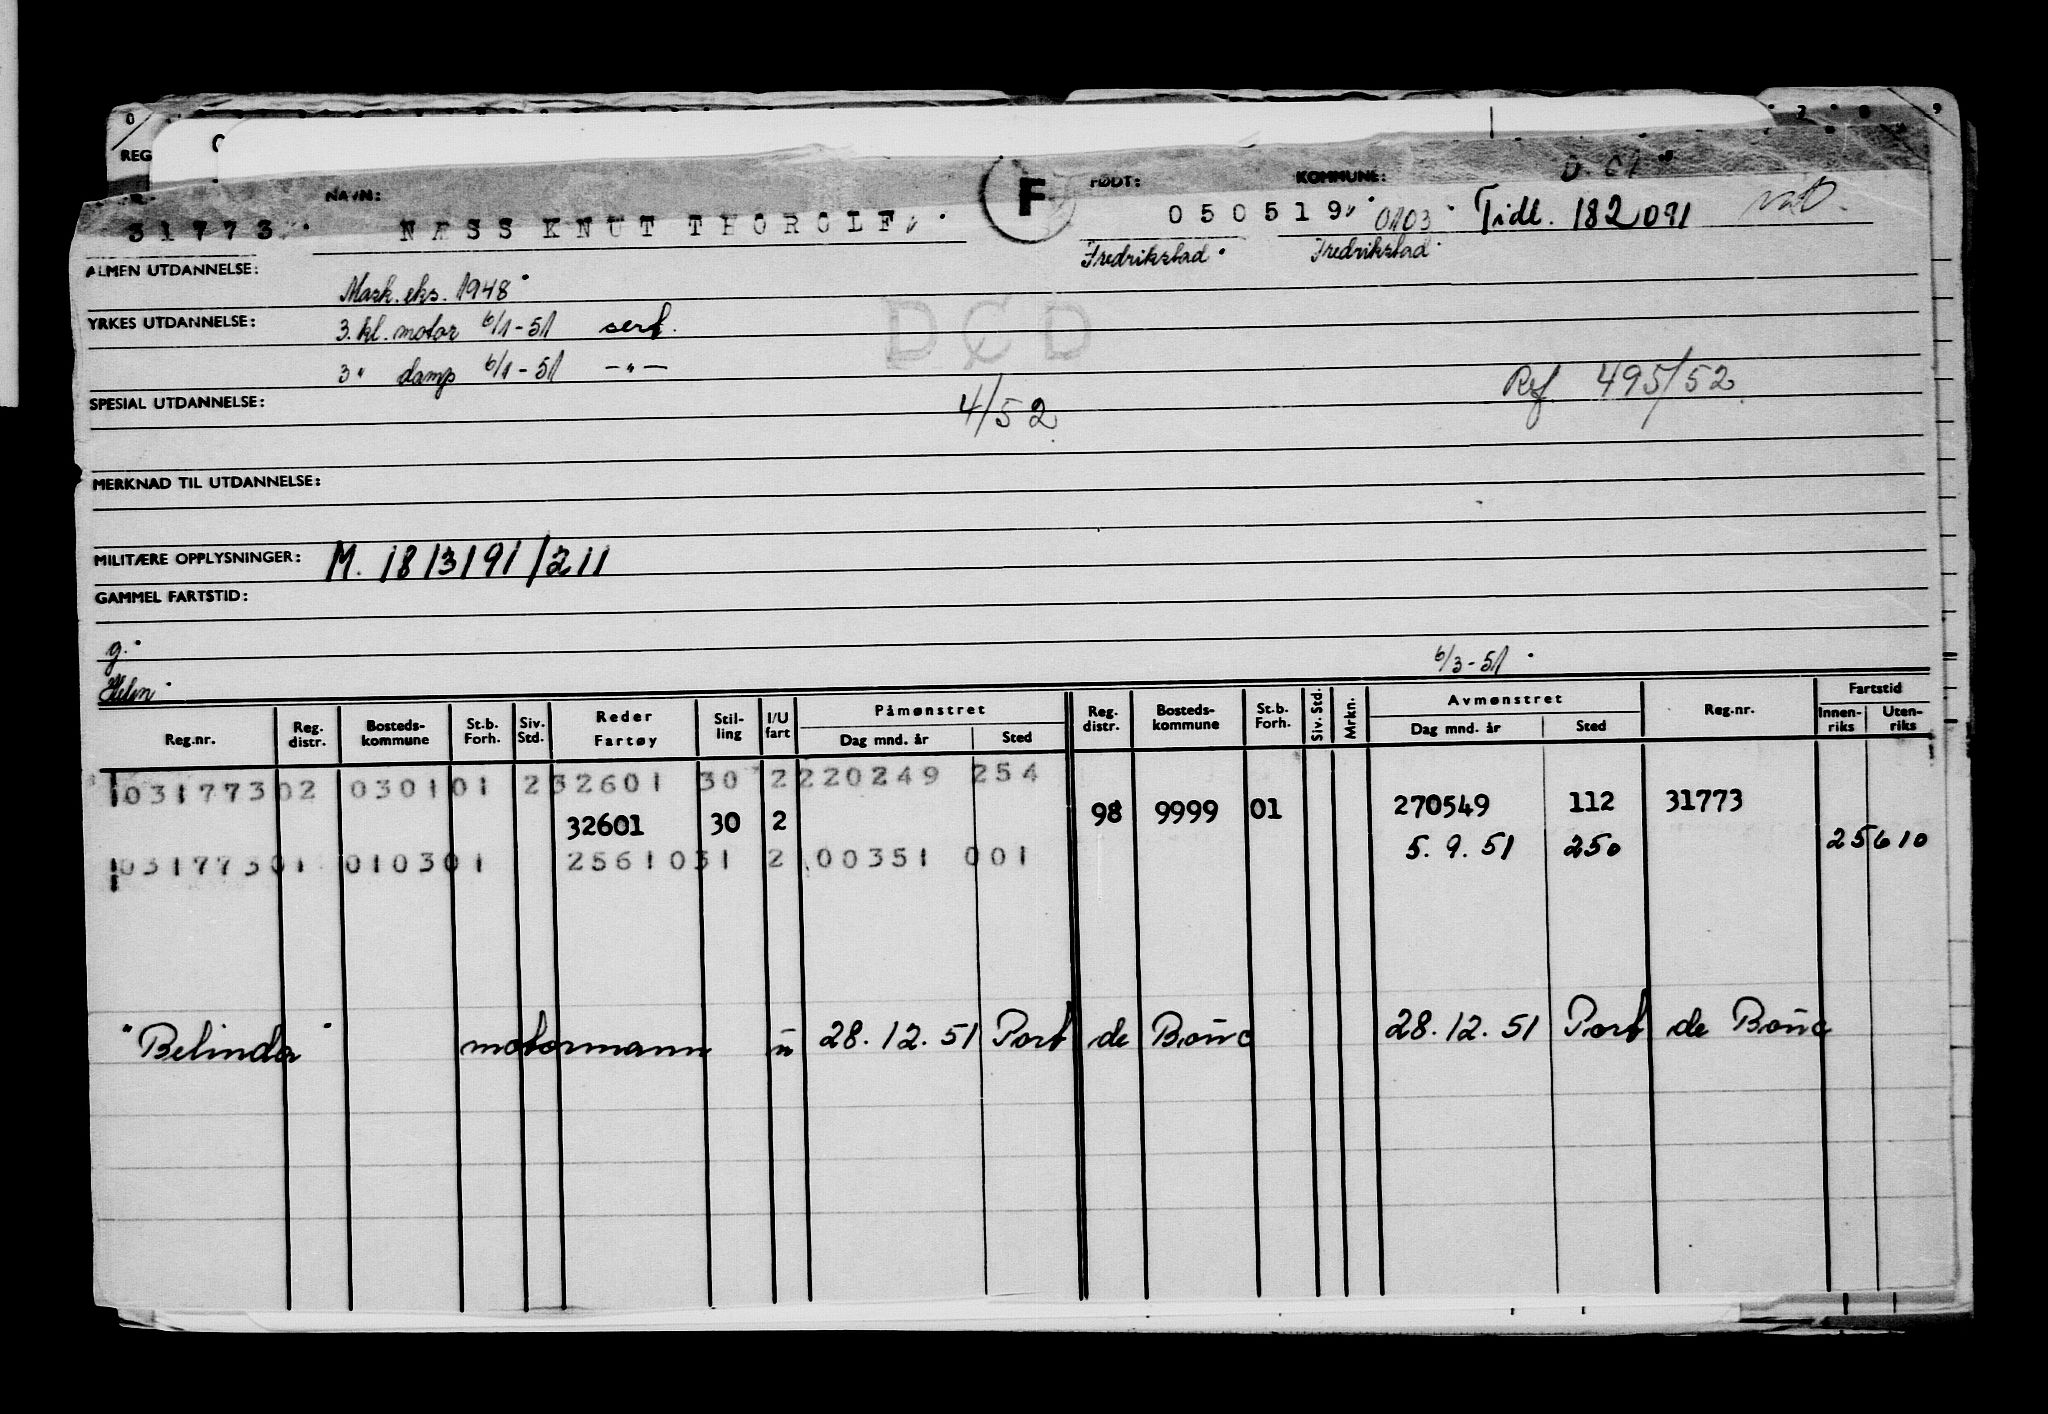 REG
NAVN: F FØDT: KOMMUNE:
31773 NÆSS KNUT THOROLF 050519 0103 Tidl. 182091
Fredrikstad Fredrikstad
ALMEN UTDANNELSE:
Mask. eks. 1948
YRKES UTDANNELSE: 3. kl. motor 6/1-51 sert.
DØD
3 " damp 6/1-51 -"-
SPESIAL UTDANNELSE: 4/52 Ref 495/52
MERKNAD TIL UTDANNELSE:
MILITÆRE OPPLYSNINGER: M. 18/3191/211
GAMMEL FARTSTID:
g.
6/3-51
Reg.nr. Reg. distr. Bosteds-kommune St.b. Forh. Siv. Std. Reder Fartøy Stil-ling I/U fart Påmønstret Dag mnd. år Sted Reg. distr. Bosteds-kommune St.b. Forh. Siv. Std. Mrkn. Avmønstret Dag mnd. år Sted Reg.nr. Fartstid Innen-riks Uten-riks
03177302 030101 232601 30 2220249 254
32601 30 2 98 9999 01 270549 112 31773
03177301 010301 2561031 2 00351 001 5. 9. 51 250 25610
"Belinda" motormann u 28. 12. 51 Port de Bouc 28. 12. 51 Port de Bouc